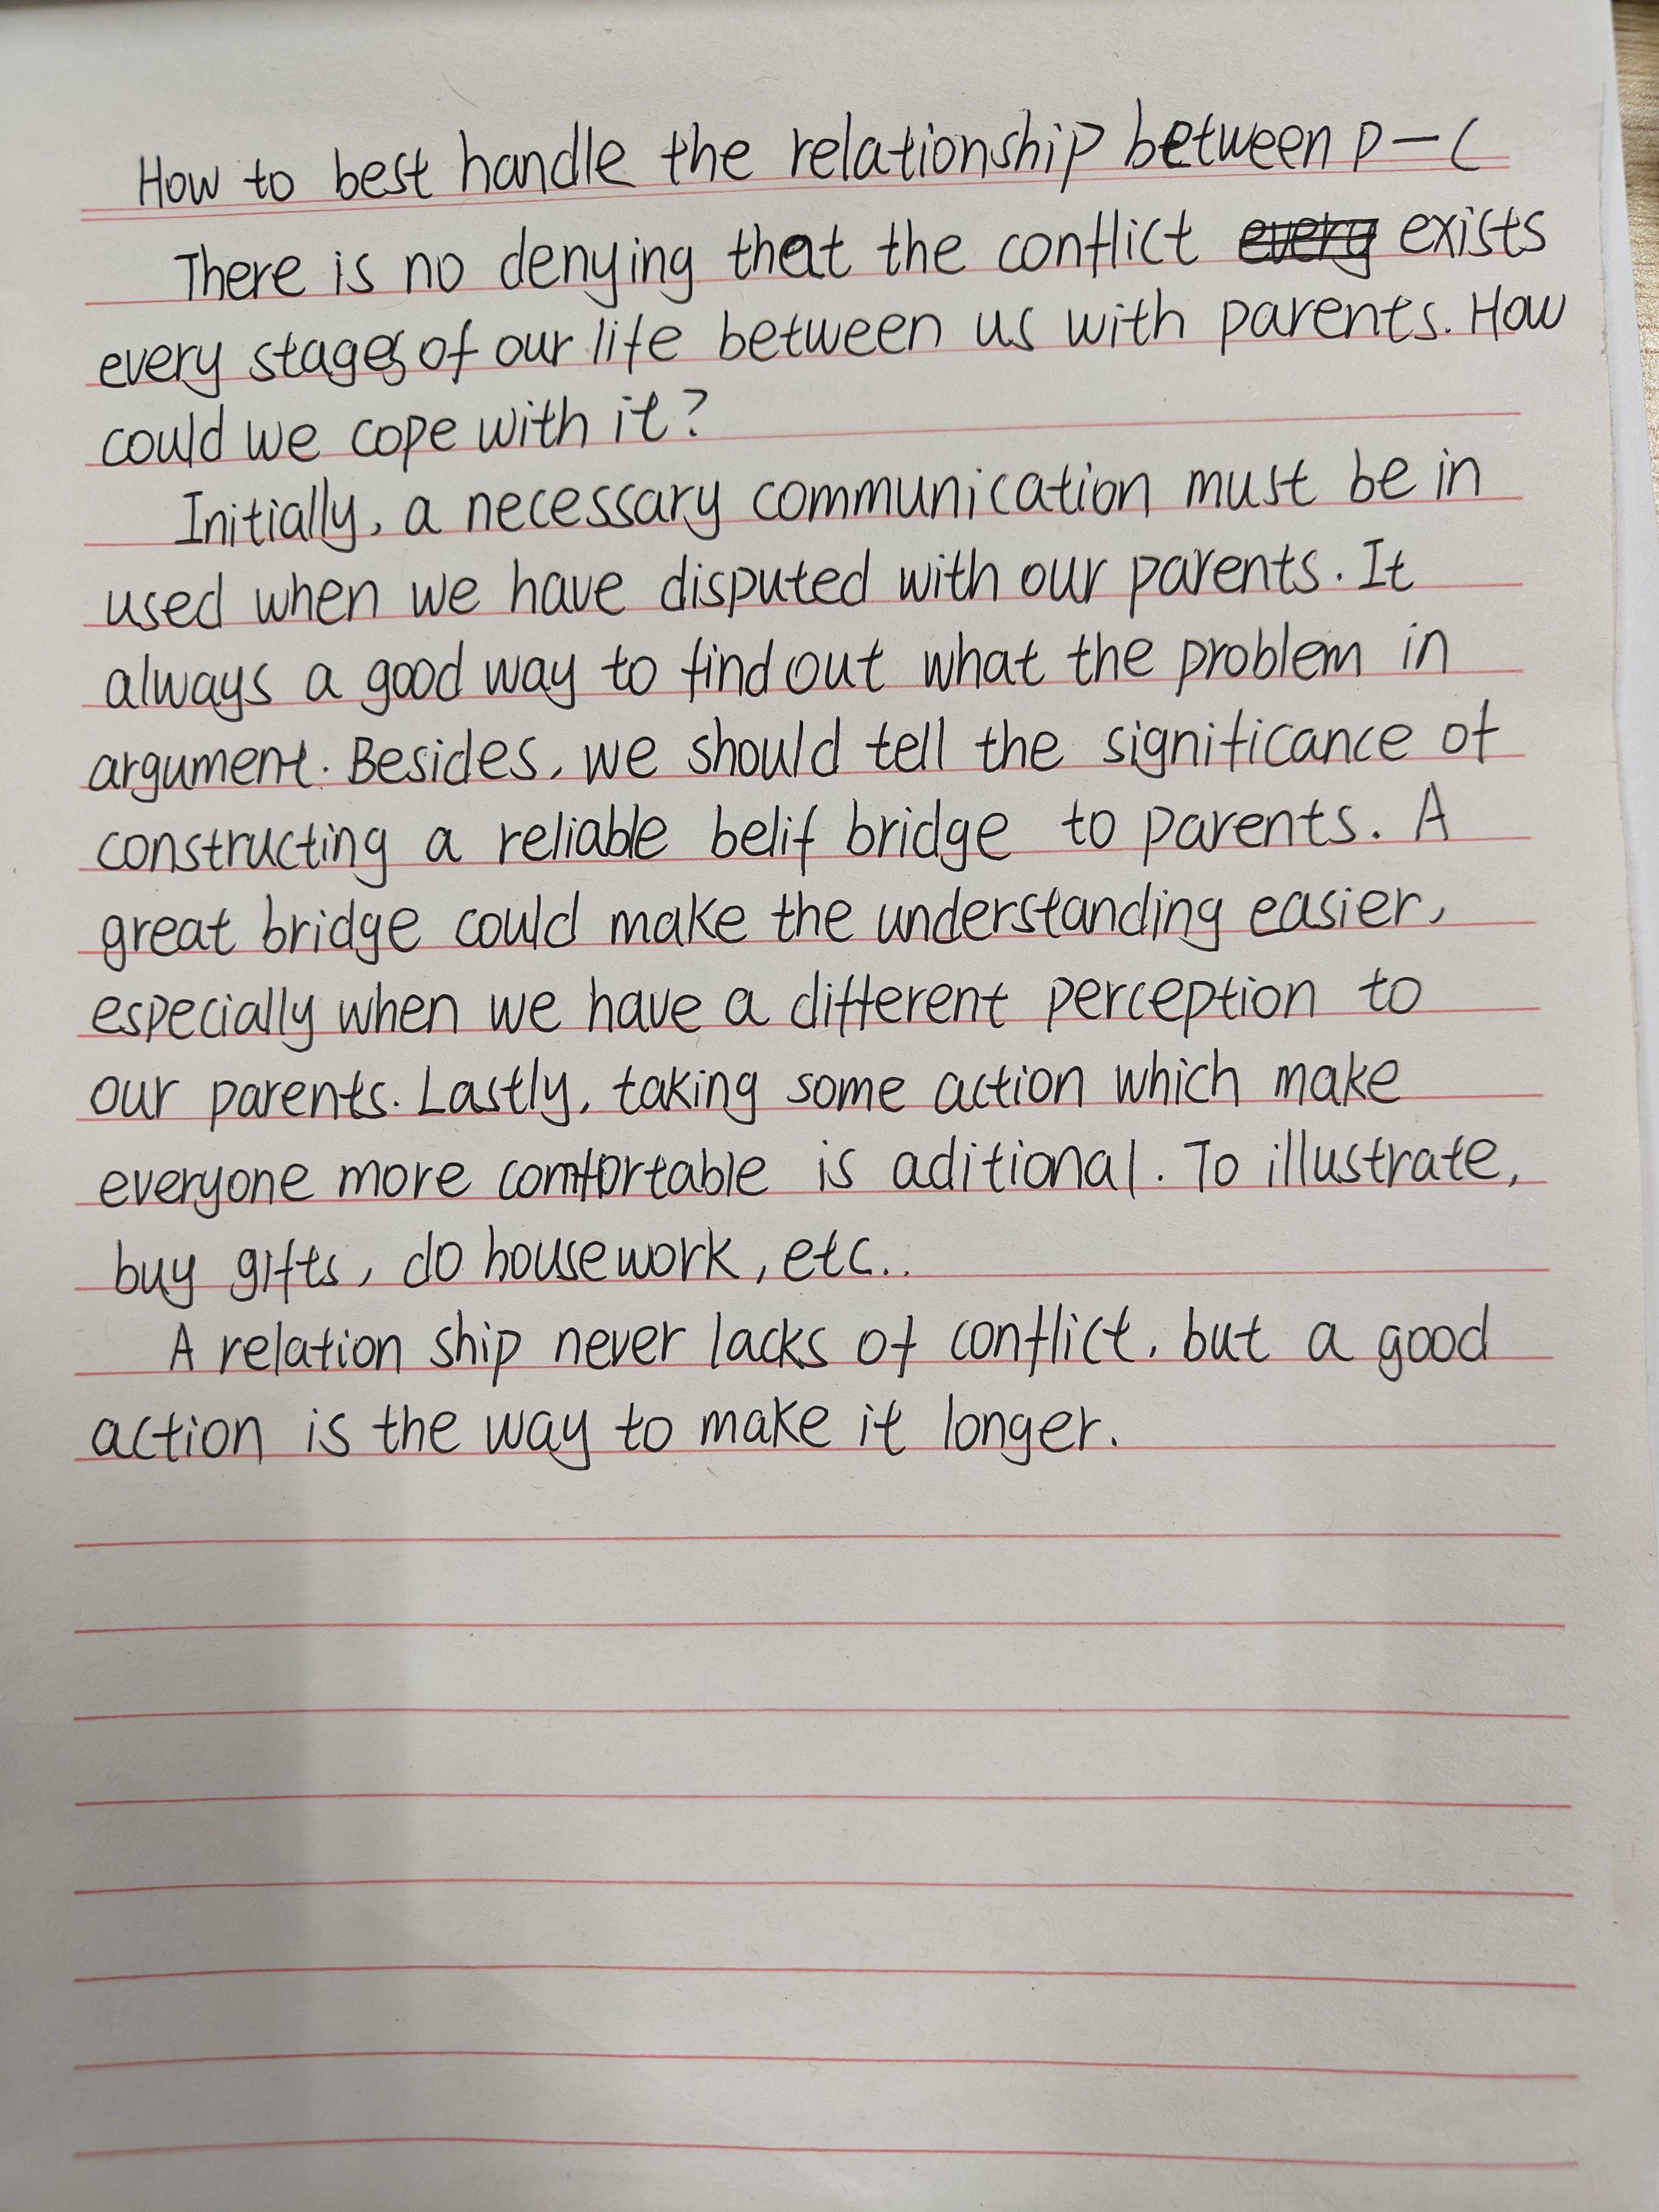 How to best handle the relationship between P-C
There is no denying that the conflict every exists
every stages of our life between us with parents. How
could we cope with it?
Initially, a necessary communication must be in
used when we have disputed with our parents. It
always a good way to find out what the problem in
argument. Besides, we should tell the significance of
constructing a reliable belif bridge to parents. A
great bridge could make the understanding easier,
especially when we have a different perception to
our parents. Lastly, taking some action which make
everyone more comfortable is aditional. To illustrate,
buy gifts, do housework, etc..
A relation ship never lacks of conflict, but a good
action is the way to make it longer.